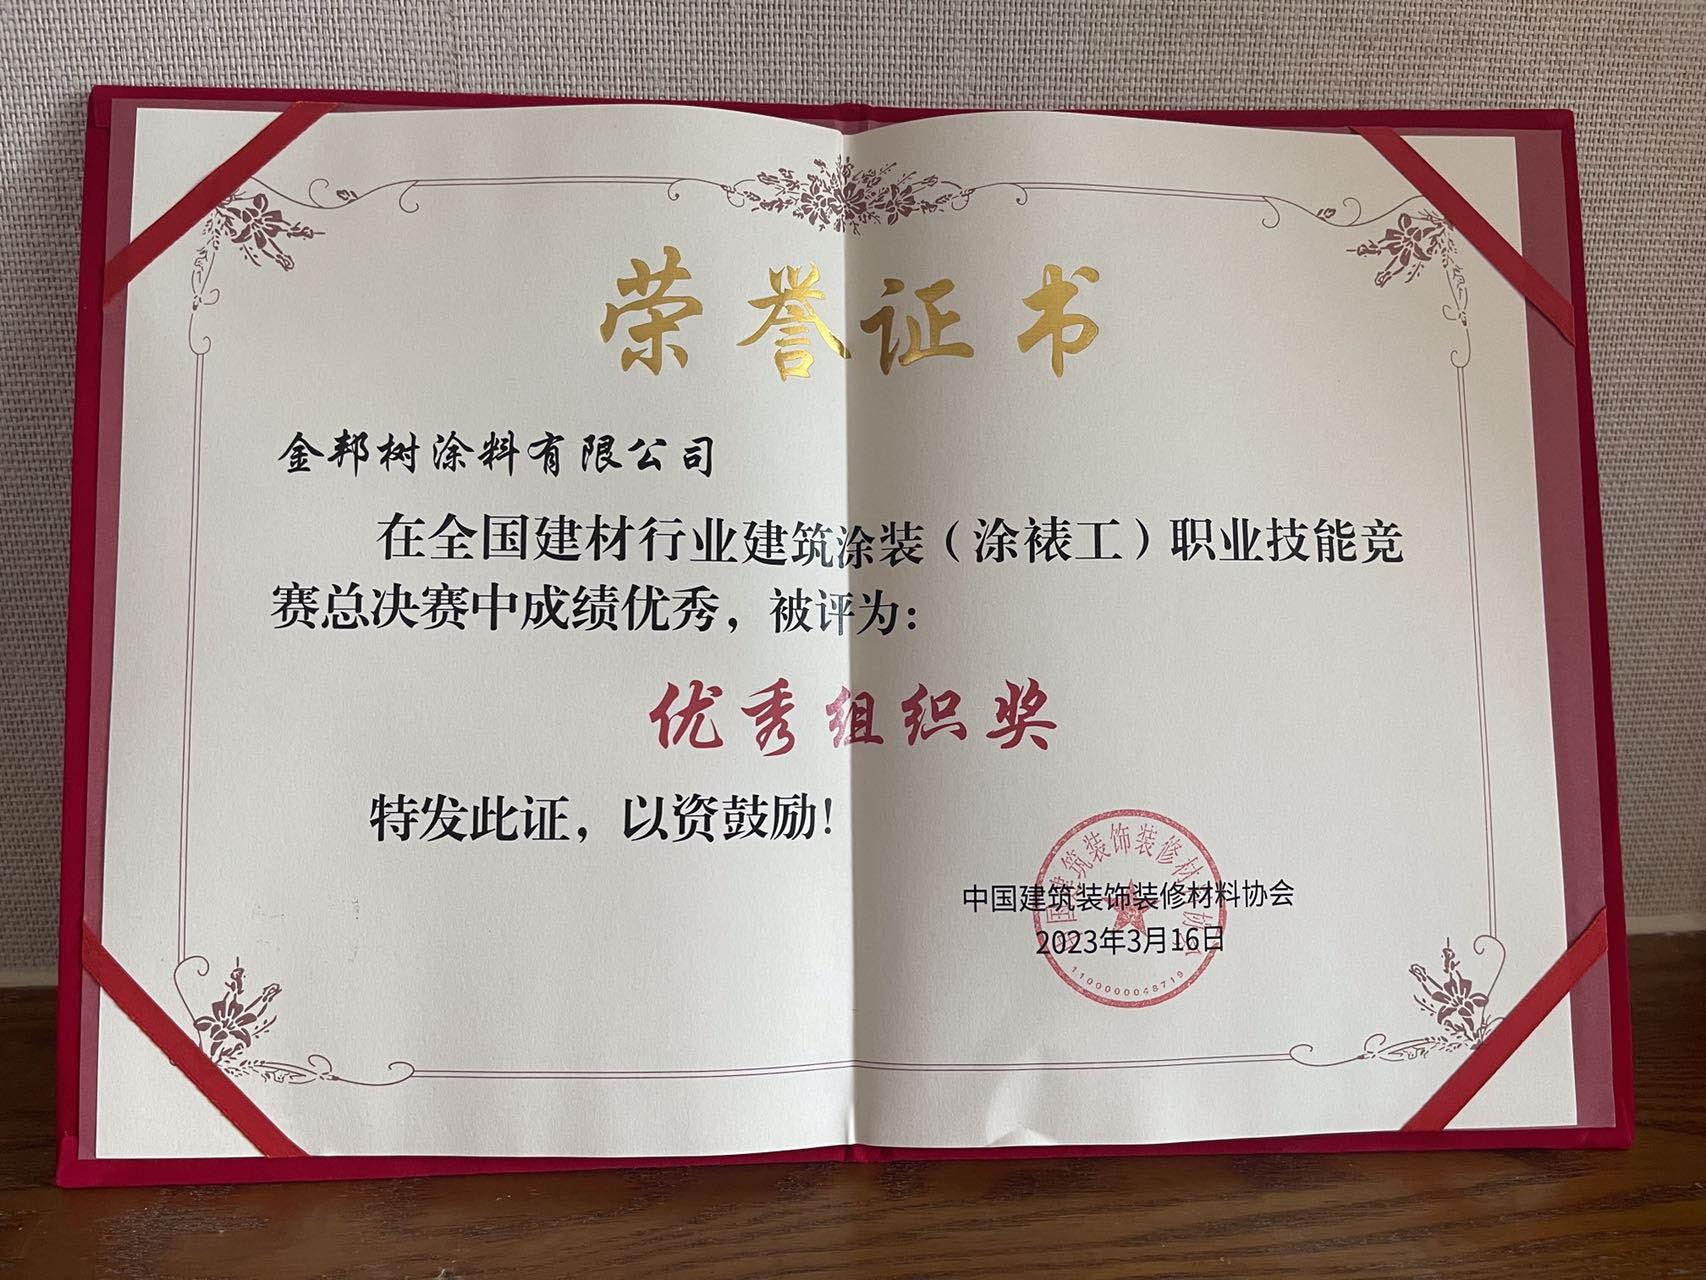 荣誉证书
金邦树涂料有限公司
在全国建材行业建筑涂装（涂裱工）职业技能竞
赛总决赛中成绩优秀，被评为：
优秀组织奖
特发此证，以资鼓励！
中国建筑装饰装修材料协会
2023年3月16日
中国建筑装饰装修材料协会
1100000048719